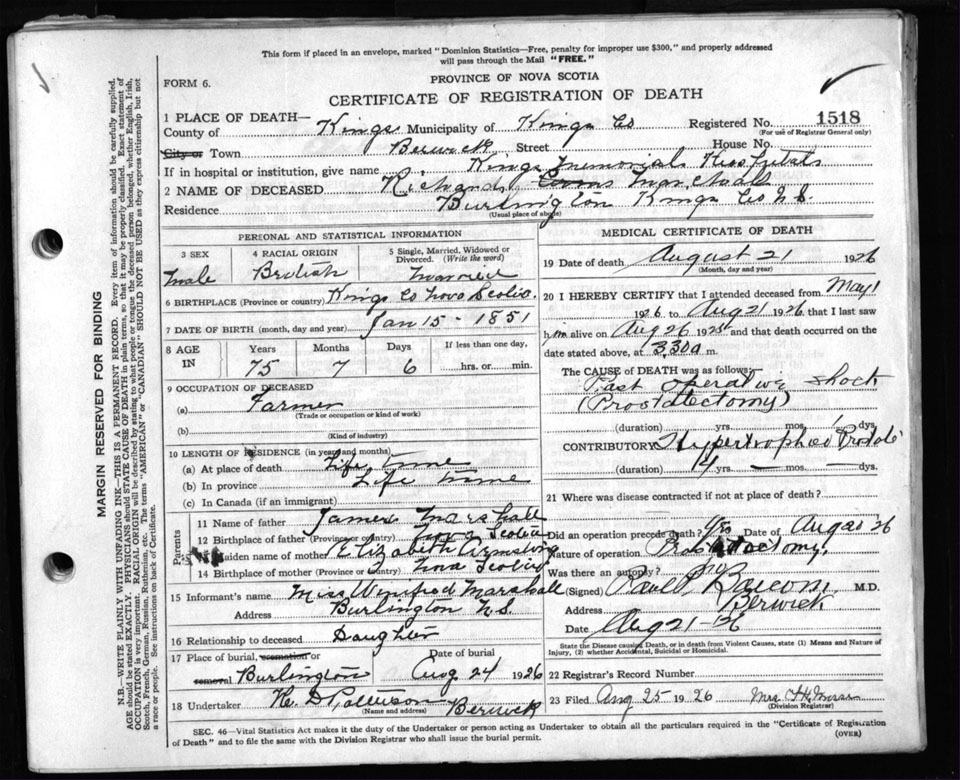 This form if placed in an envelope, marked "Dominion Statistics—Free, penalty for improper use $300," and properly addressed
will pass through the Mail "FREE."
PROVINCE OF NOVA SCOTIA
FORM 6.
CERTIFICATE OF REGISTRATION OF DEATH
1 PLACE OF DEATH—
County of Kings Municipality of Kings Co Registered No. 1518
(For use of Registrar General only)
City or Town Berwick Street House No.
If in hospital or institution, give name Kings Memorial Hospital
2 NAME OF DECEASED Richard Marshall
Residence Burlington Kings Co N.S.
(Usual place of abode)
PERSONAL AND STATISTICAL INFORMATION
3 SEX 4 RACIAL ORIGIN 5 Single, Married, Widowed or Divorced. (Write the word)
Male British Married
6 BIRTHPLACE (Province or country) Kings Co Nova Scotia
7 DATE OF BIRTH (month, day and year) Jan 15 - 1851
8 AGE IN Years Months Days If less than one day,
75 7 6 hrs. or min.
9 OCCUPATION OF DECEASED
(a) Farmer
(Trade or occupation or kind of work)
(b)
(Kind of industry)
10 LENGTH OF RESIDENCE (in years and months)
(a) At place of death Life time
(b) In province Life time
(c) In Canada (if an immigrant)
Parents
11 Name of father James Marshall
12 Birthplace of father (Province or country) Scotia
Maiden name of mother Elizabeth Armstrong
14 Birthplace of mother (Province or Country) Nova Scotia
15 Informant's name Miss Winifred Marshall
Address Burlington N.S.
16 Relationship to deceased Daughter
17 Place of burial, cremation or removal Burlington Date of burial Aug 24 1926
18 Undertaker H. D Patterson Berwick
(Name and address)
MEDICAL CERTIFICATE OF DEATH
19 Date of death August 21 1926
(Month, day and year)
20 I HEREBY CERTIFY that I attended deceased from May 1
1926 to Aug 21 1926 that I last saw
him alive on Aug 26 192 and that death occurred on
date stated above, at 3.30 a m.
The CAUSE of DEATH was as follows:
Post operative shock
(Prostatectomy)
(duration) yrs. mos. 1 dys.
CONTRIBUTORY Hypertrophied Prostate
(duration) 14 yrs. — mos. — dys.
21 Where was disease contracted if not at place of death?
Did an operation precede death? Yes Date of Aug 20 26
Nature of operation Prostatectomy
Was there an autopsy? no
(Signed) Paul P. Balcom M.D.
Address Berwick
Date Aug 21-26
State the Disease causing Death, or in death from Violent Causes, state (1) Means and Nature of
Injury, (2) whether Accidental, Suicidal or Homicidal.
22 Registrar's Record Number
23 Filed Aug 25 1926 Mrs
(Division Registrar)
SEC. 46—Vital Statistics Act makes it the duty of the Undertaker or person acting as Undertaker to obtain all the particulars required in the "Certificate of Registration
of Death" and to file the same with the Division Registrar who shall issue the burial permit.
(OVER)
MARGIN RESERVED FOR BINDING
N.B.—WRITE PLAINLY WITH UNFADING INK—THIS IS A PERMANENT RECORD. Every item of information should be carefully supplied.
AGE should be stated EXACTLY. PHYSICIANS should STATE CAUSE OF DEATH in plain terms, so that it may be properly classified. Exact statement of
OCCUPATION is very important. RACIAL ORIGIN will be described by stating to what people or tongue the deceased person belonged, whether English, Irish,
Scotch, French, German, Russian, Ruthenian, etc. The terms "AMERICAN" or "CANADIAN" SHOULD NOT BE USED as they express citizenship but not
a race or people. See instructions on back of Certificate.